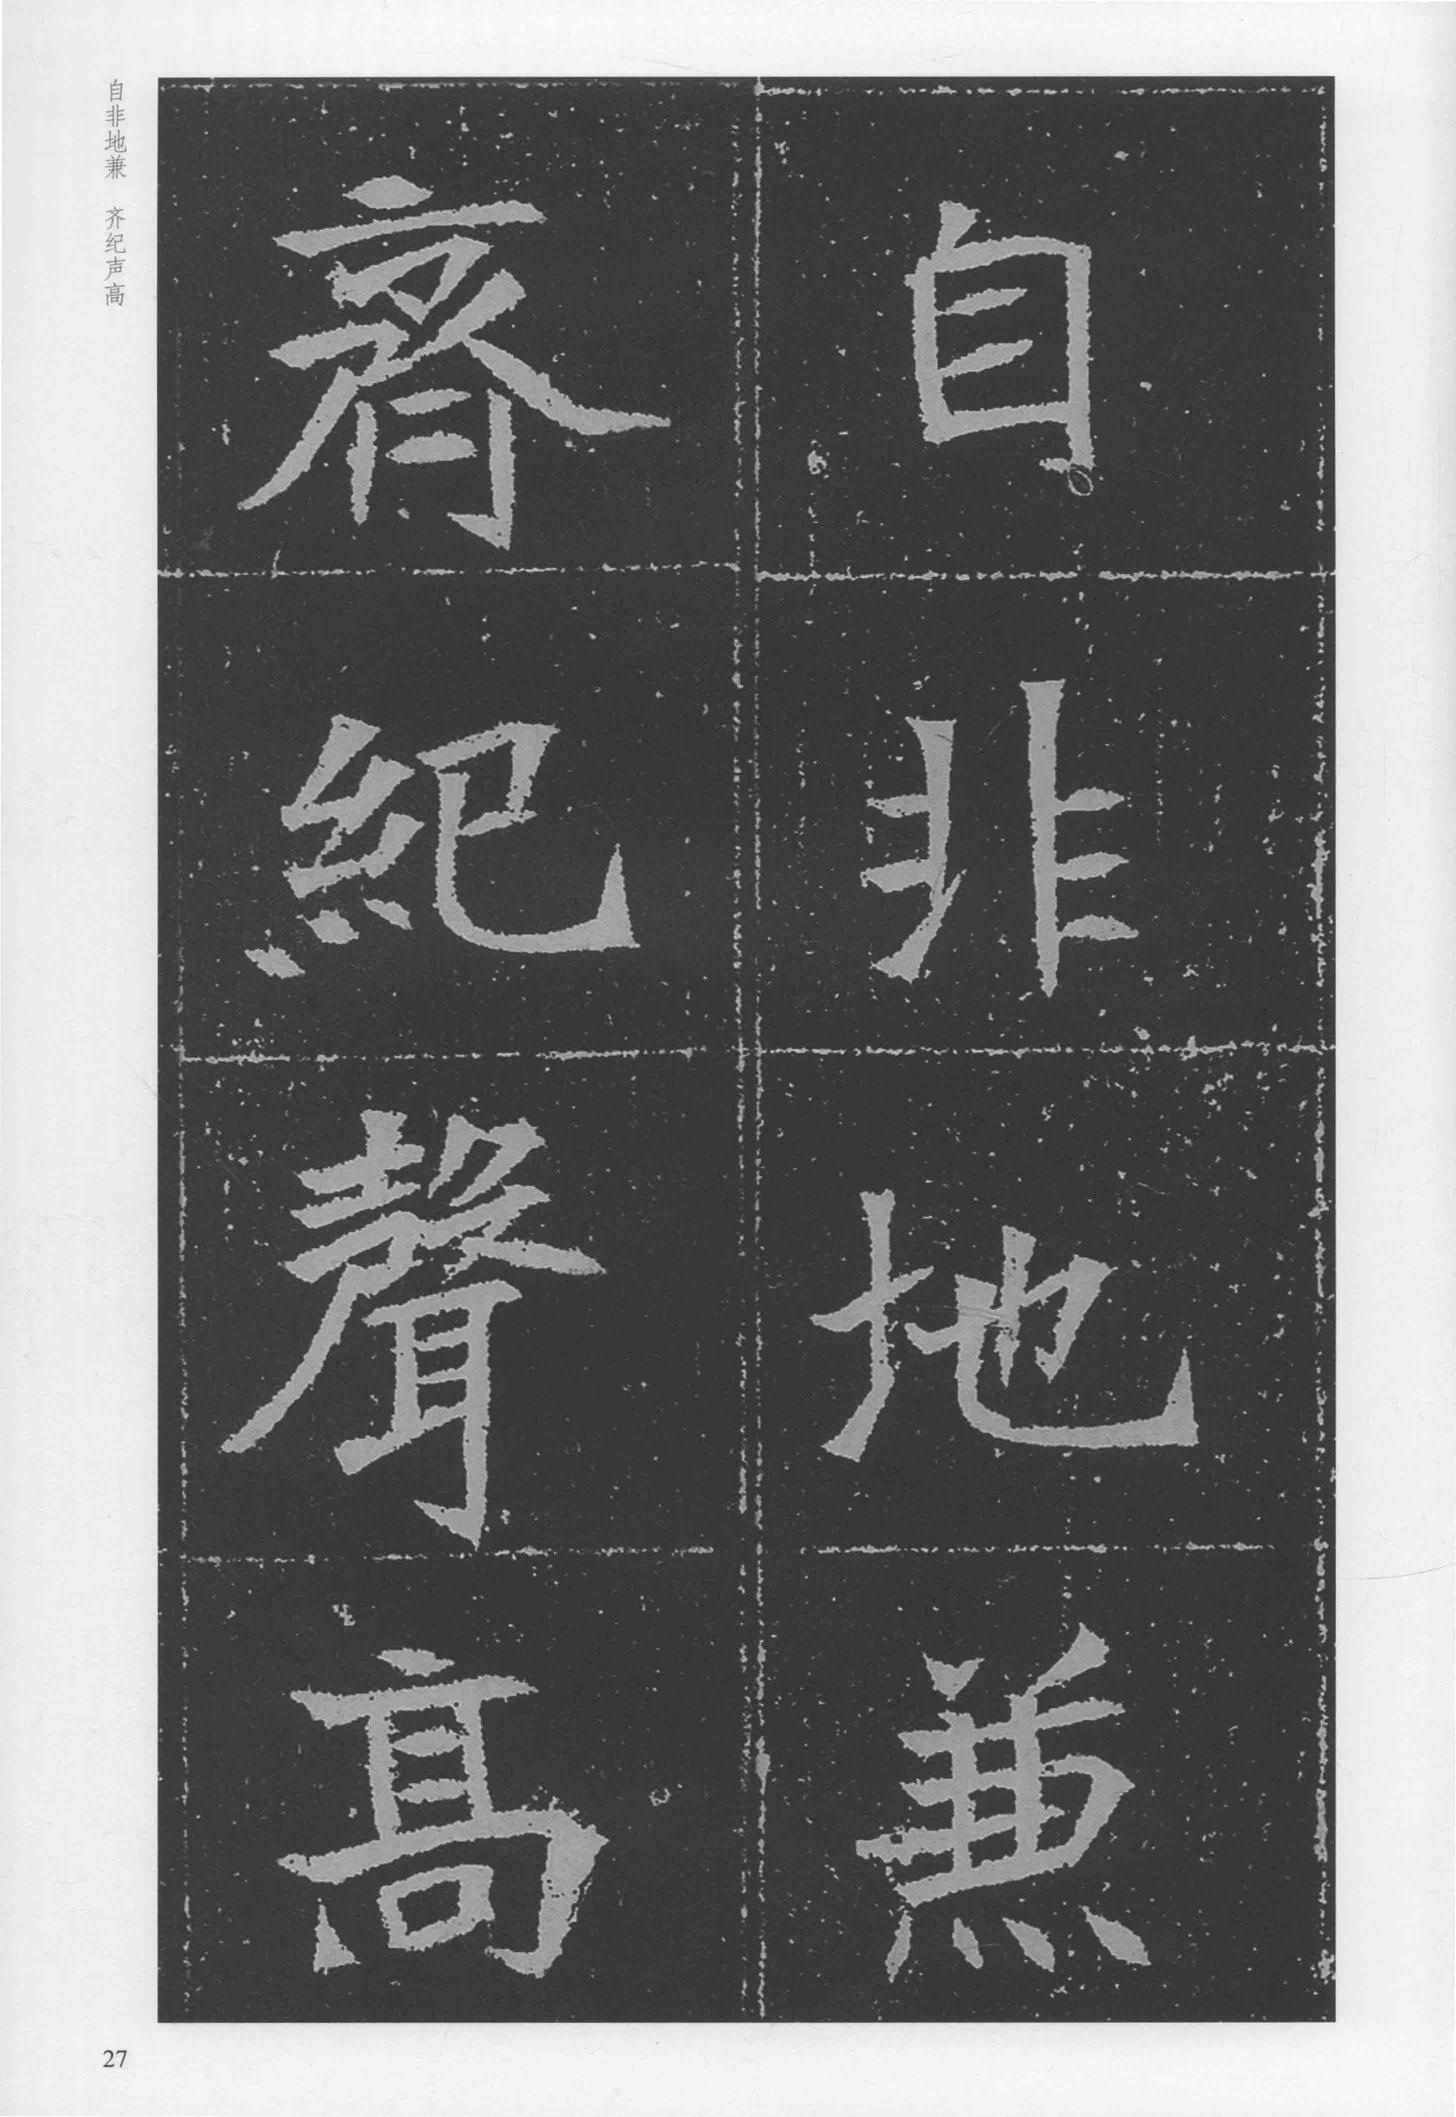 自非地兼
齊紀聲高
自非地兼 齐纪声高
27